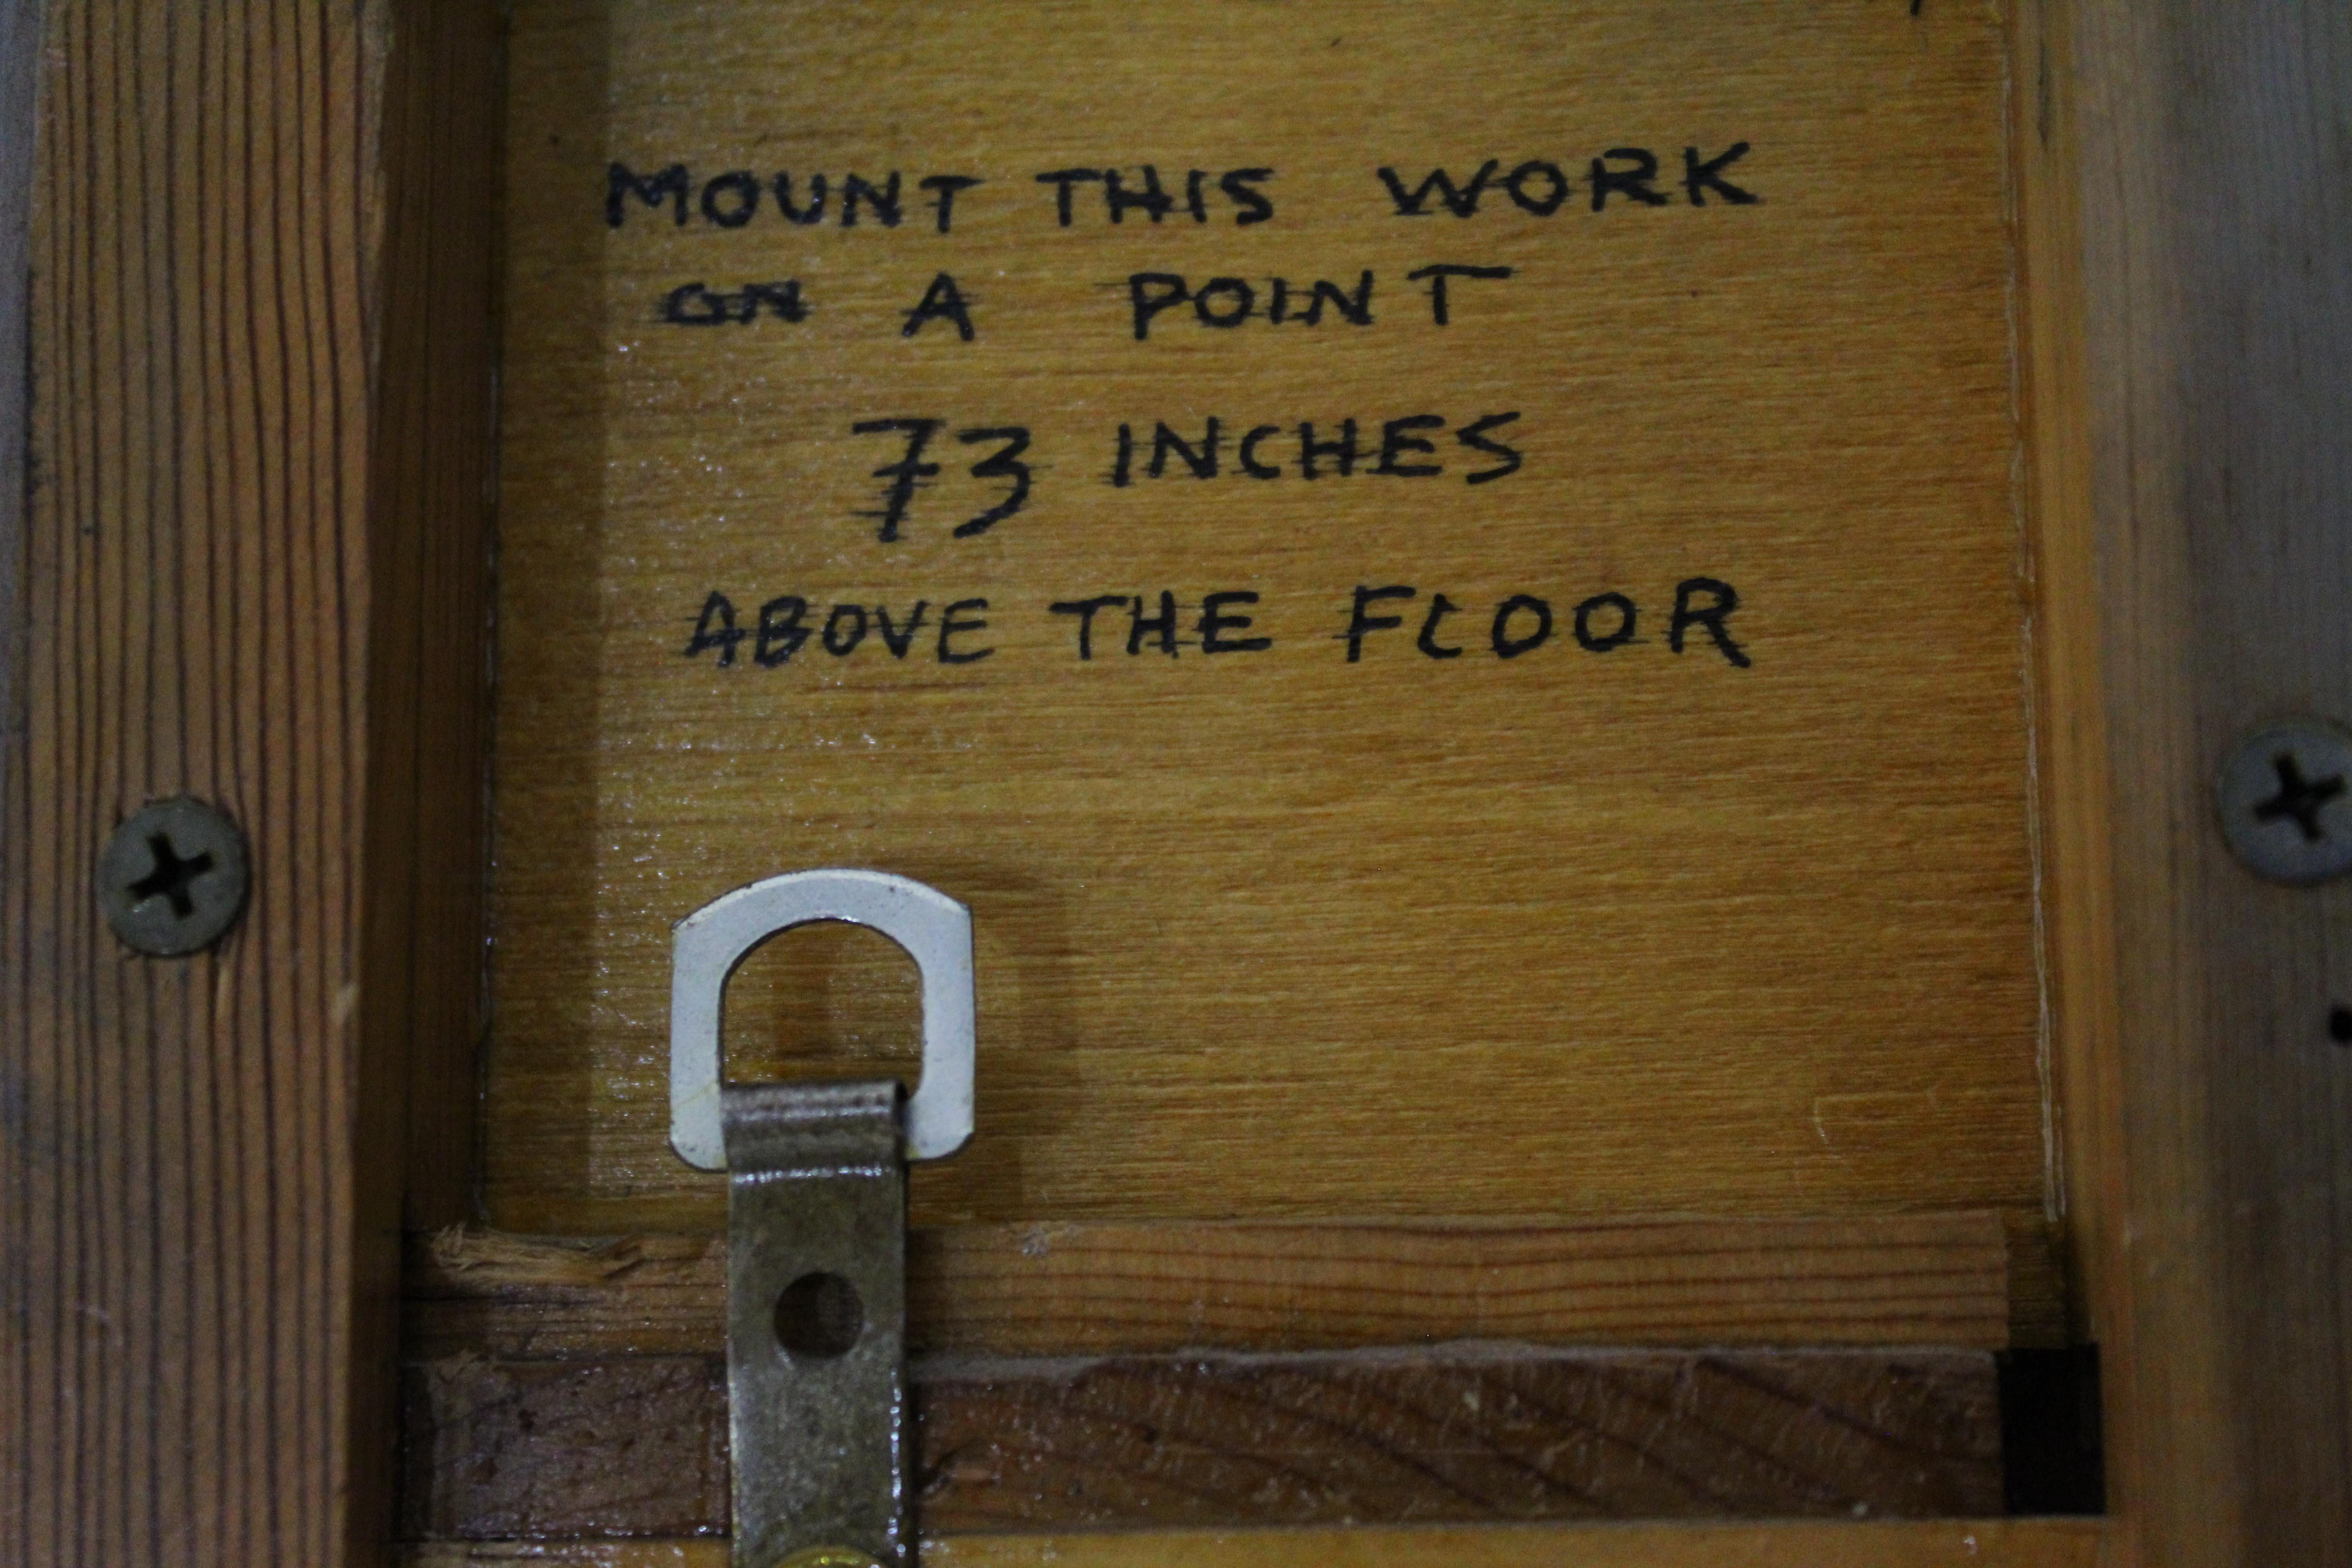 MOUNT THIS WORK
ON A POINT
73 INCHES
ABOVE THE FLOOR